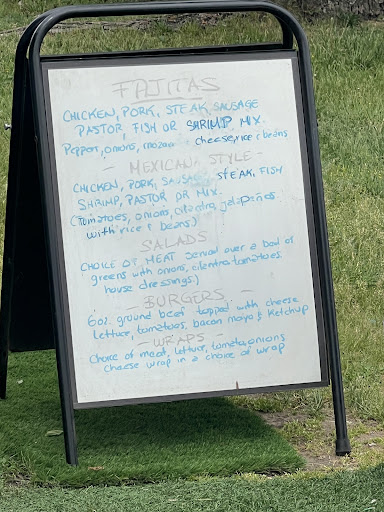 FAJITAS
CHICKEN, PORK, STEAK, SAUSAGE
PASTOR, FISH OR SHRIMP MIX.
Peppers, onions, cheese, rice & beans
- MEXICANA STYLE -
CHICKEN, PORK, SAUSAGE, STEAK, FISH
SHRIMP, PASTOR OR MIX.
(Tomatoes, onions, cilantro, jalapeños
with rice & beans)
SALADS
CHOICE OF MEAT served over a bed of
greens with onions, cilantro, tomatoes
house dressings.)
- BURGERS -
6oz. ground beef topped with cheese
lettuce, tomatoes, bacon mayo & Ketchup
- WRAPS -
Choice of meat, lettuce, tomato, onions
cheese wrap in a choice of wrap